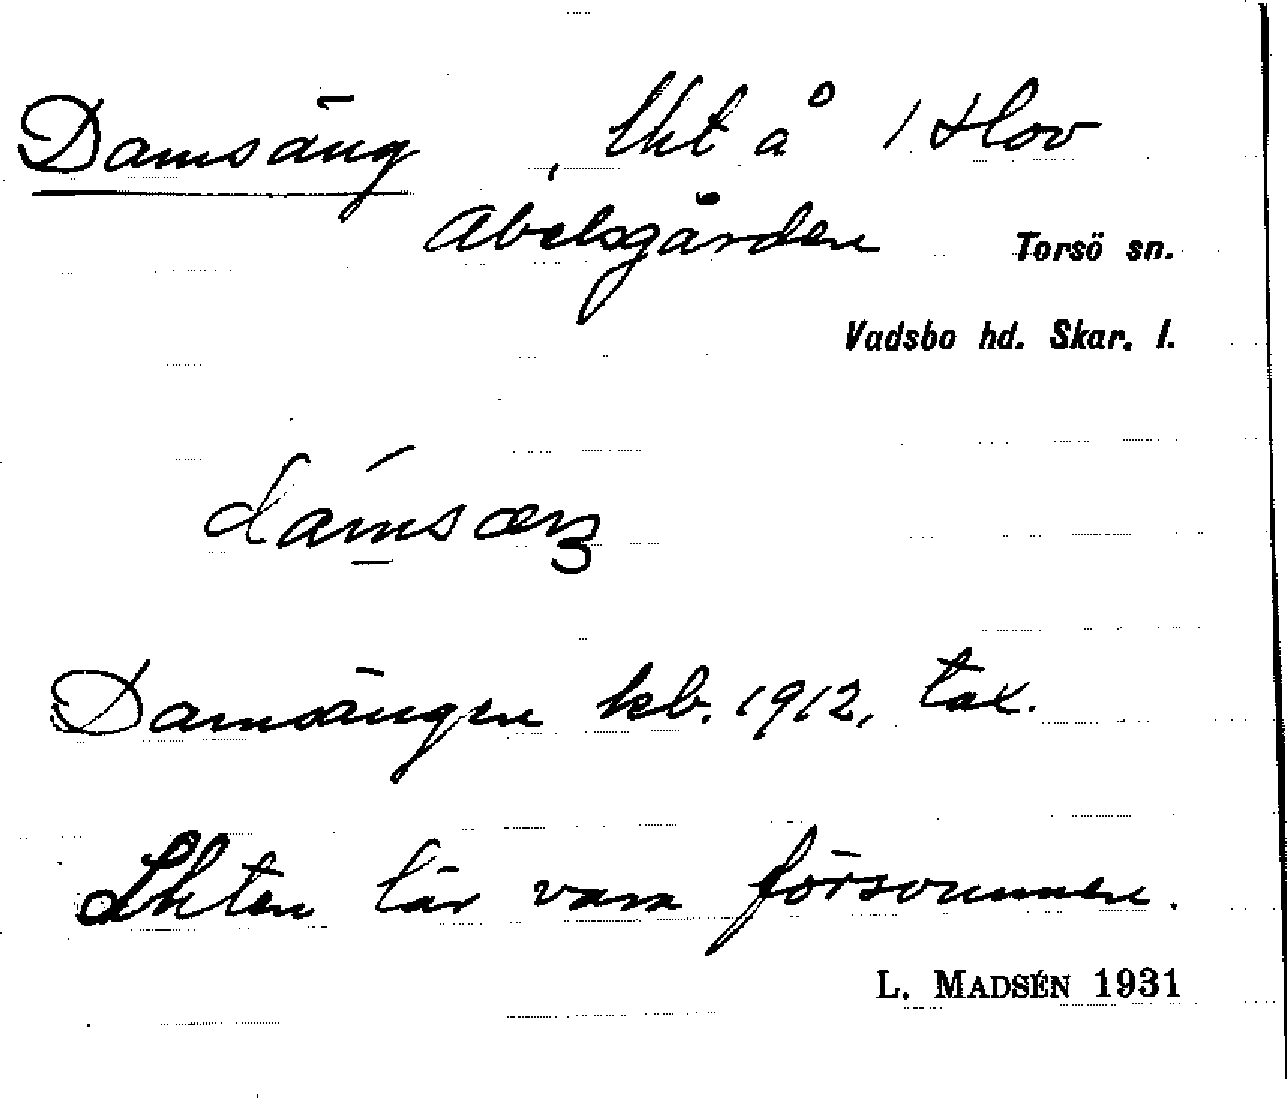 Damsäng, lht å 1 Hov
Abelsgården Torsö sn.
Vadsbo hd. Skar. l.
dámsæŋ
Damsängen kb. 1912, tax.
Lhten lär vara försvunnen.
L. MADSÉN 1931